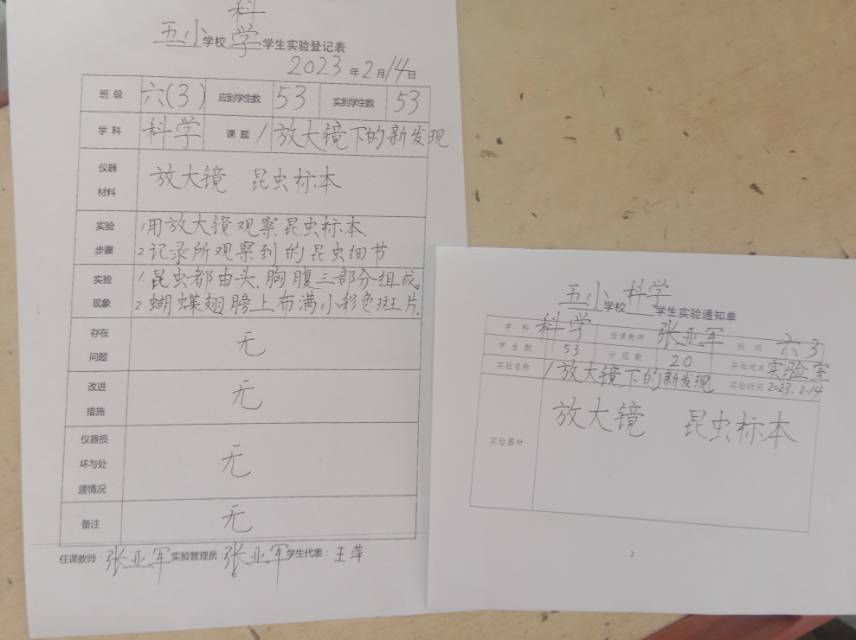 科
五小学校 学 学生实验登记表
2023年2月14日
班级 六(3) 应到学生数 53 实到学生数 53
学科 科学 课题 1放大镜下的新发现
仪器材料 放大镜 昆虫标本
实验步骤 1用放大镜观察昆虫标本
2记录所观察到的昆虫细节
实验现象 1昆虫都由头、胸腹三部分组成。
2蝴蝶翅膀上布满小彩色斑片.
存在问题 无
改进措施 无
仪器损坏与处理情况 无
备注 无
任课教师:张亚军 实验管理员:张亚军 学生代表:王萍
五小学校 科学 学生实验通知单
学科 科学 任课教师 张亚军 班级 六3
学生数 53 分组数 20 实验地点 实验室
实验名称 1放大镜下的新发现 实验时间 2023.2.14
实验器材 放大镜 昆虫标本
2